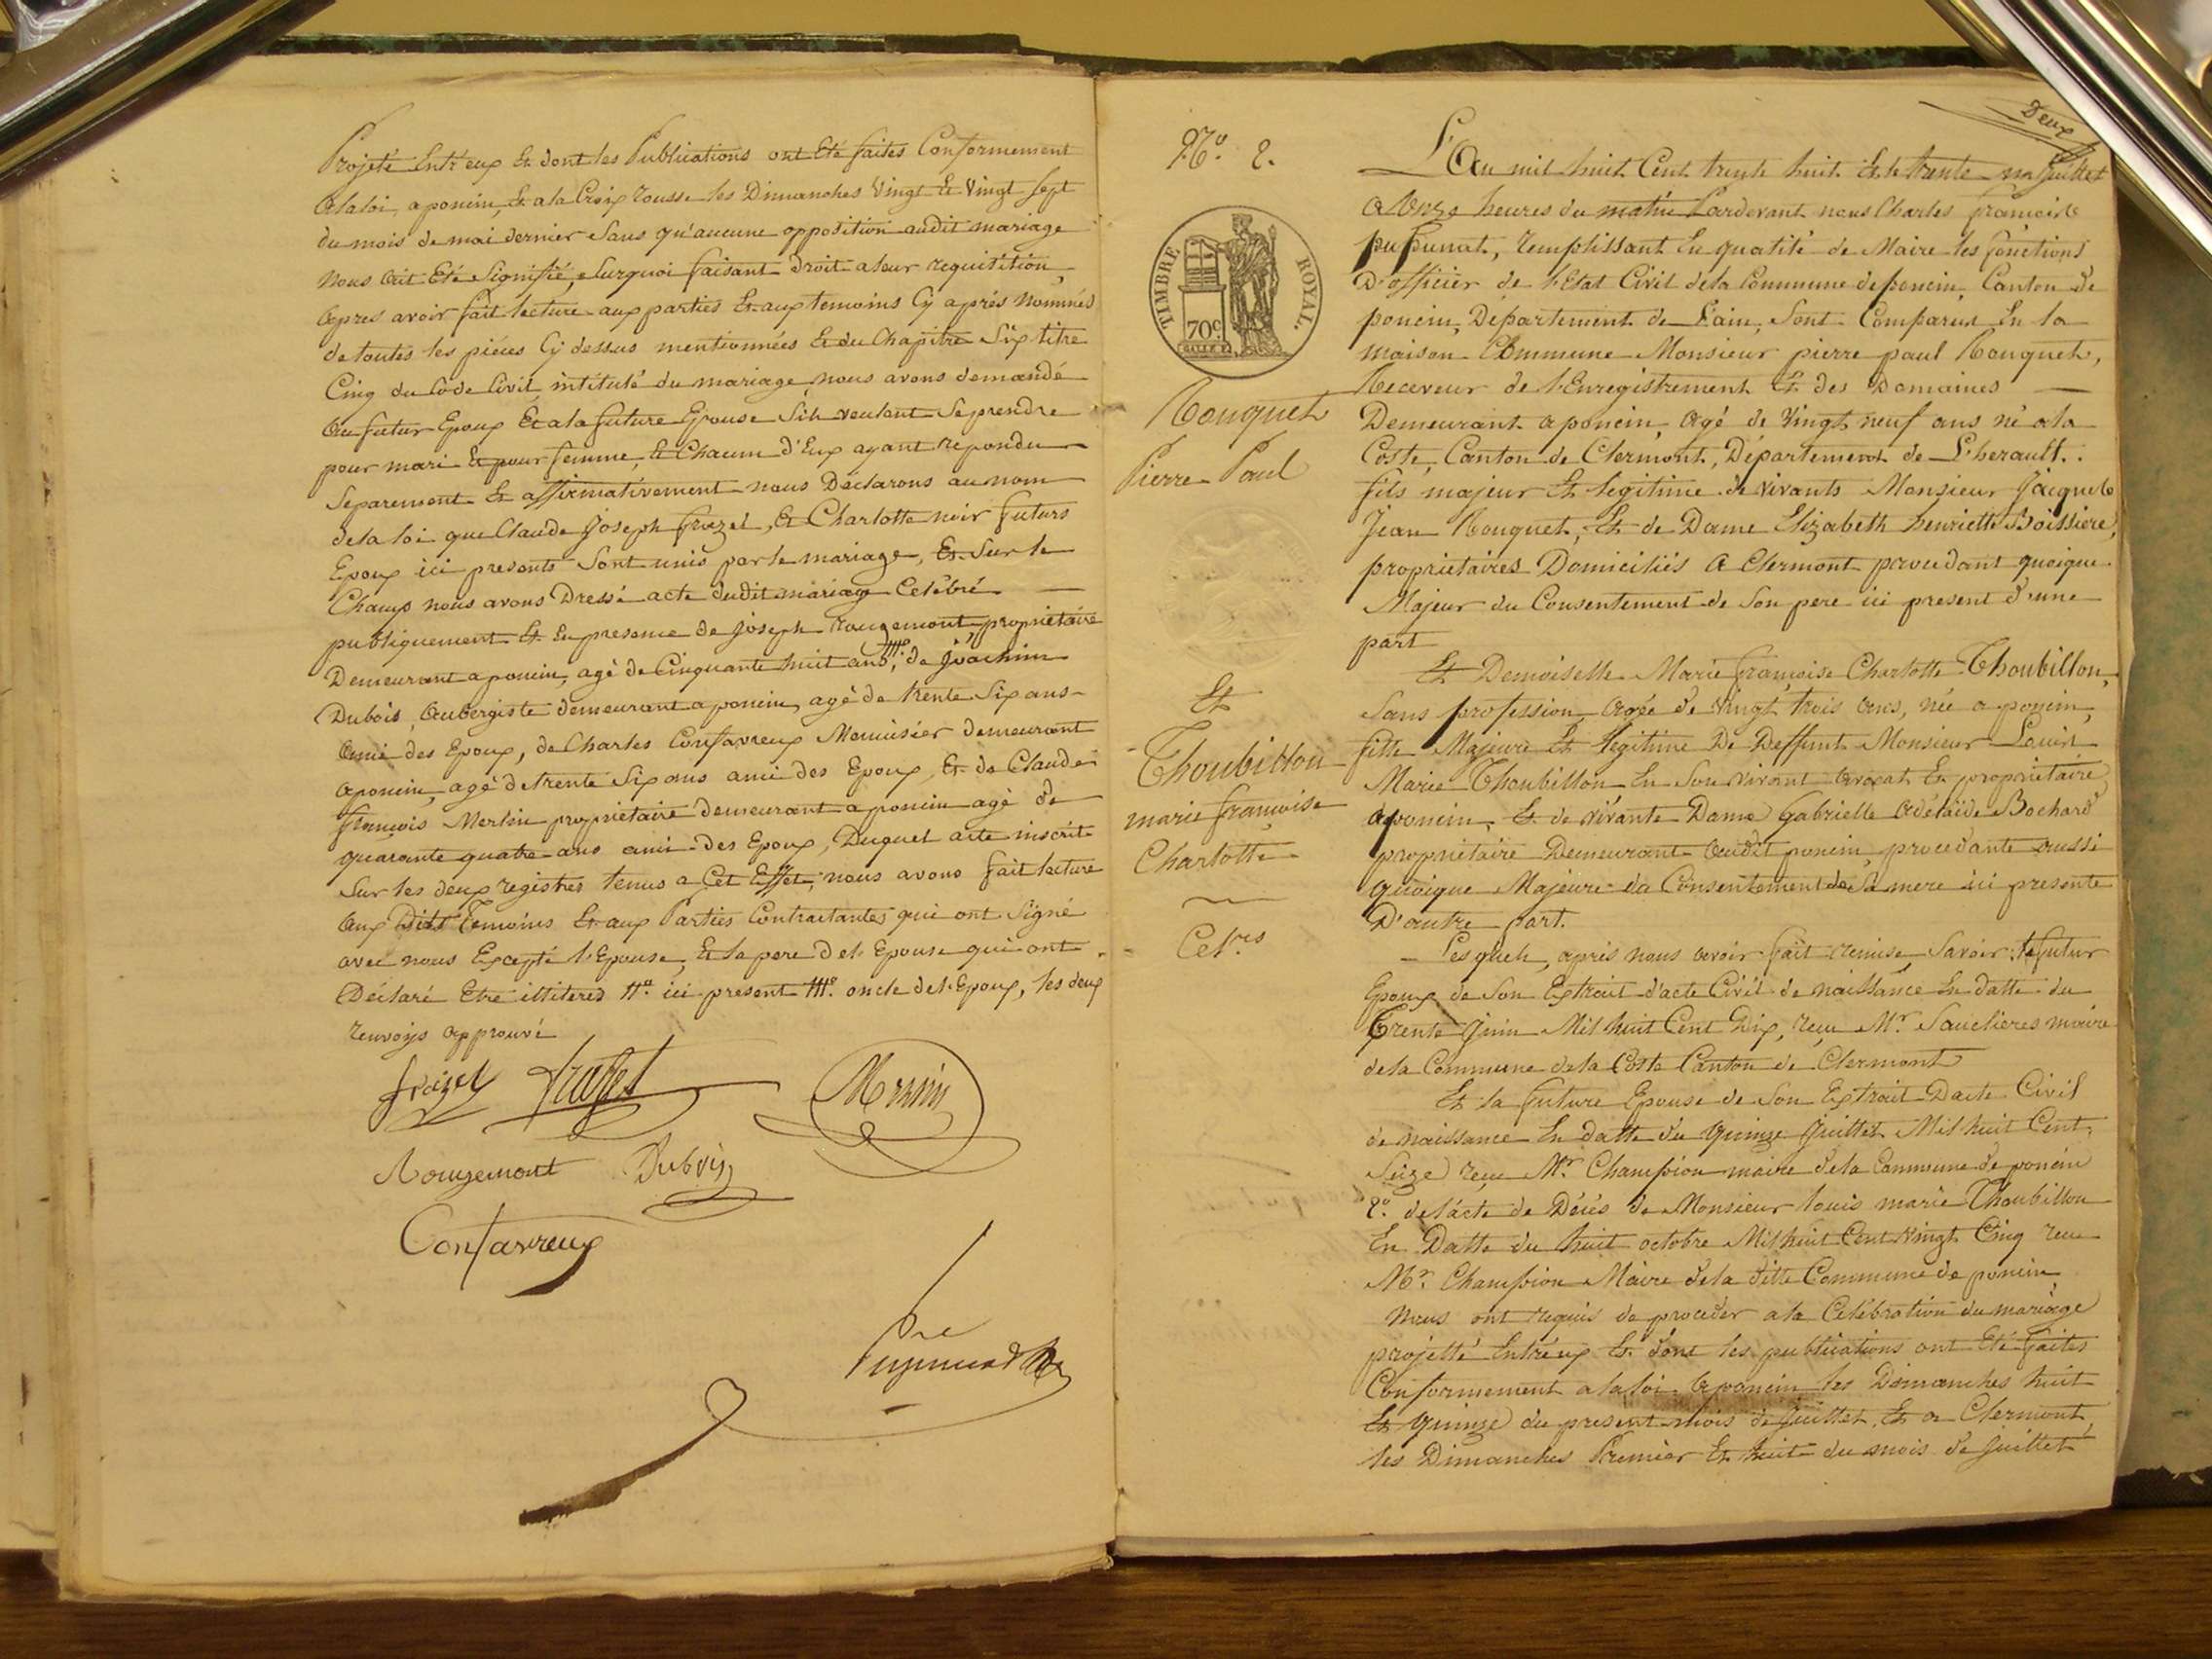 Projeté Entr'eux Et dont les Publications ont Eté faites Conformement
a la loi, a poncin, Et a la Croix rousse les Dimanches Vingt Et Vingt sept
du mois de mai dernier Sans qu'aucune opposition audit mariage
nous ait Eté Signifié, Surquoi faisant droit a leur requisition,
apres avoir fait lecture aux parties Et aux temoins Cy après nommés
de toutes les piéces Cy dessus mentionnées Et du Chapitre Six titre
Cinq du Code Civil, intitulé du mariage, nous avons demandé
au futur Epoux Et a la future Epouse S'ils veulent Se prendre
pour mari Et pour femme, Et Chacun d'Eux ayant repondu
Separement Et affirmativement nous Déclarons au nom
de la loi que Claude Joseph frazet, Et Charlotte noir futurs
Epoux ici presents Sont unis par le mariage, Et Sur le
Champ nous avons Dressé acte dudit mariage Celébré
publiquement Et En presence de joseph rougemont propriétaire
Demeurant a poncin, agé de Cinquante huit ans, de joachim
Dubois, Aubergiste demeurant a poncin, agé de trente Six ans
ami des Epoux, de Charles Confavreux Menuisier demeurant
a poncin, agé de trente Six ans ami des Epoux, Et de Claude
françois Merlin propriétaire demeurant a poncin agé de
quarante quatre ans ami des Epoux, Duquel acte inscrit
Sur les deux registres tenus a Cet Effet, nous avons fait lecture
aux Dits Temoins Et aux Parties Contractantes qui ont Signé
avec nous Excepté l'Epouse, Et le pere de l'Epouse qui ont
Déclaré Etre illiterés ici present oncle de l'Epoux, les deux
renvoys approuvé
frazet frazet Merlin
Rougemont Dubois
Confavreux
Deux
N.º 2.
TIMBRE ROYAL.
70c
Rouquet
Pierre Paul
Et
Thoubillon
marie françoise
Charlotte
L'An mil huit Cent trente huit Et le trente un juillet
a Onze heures du matin Pardevant nous Charles françois
remplissant En qualité de Maire les fonctions
D'officier de l'Etat Civil de la Commune de poncin, Canton de
poncin, Département de L'ain, Sont Comparus En la
maison Commune Monsieur pierre paul Rouquet,
Receveur de l'Enregistrement Et des Domaines
Demeurant a poncin, agé de Vingt neuf ans né a la
Coste, Canton de Clermont, Département de L'herault.
fils majeur Et legitime de vivants Monsieur Jacques
Jean Rouquet, Et de Dame Elizabeth henriette Boissiere,
propriétaires Domiciliés a Clermont procedant quoique
Majeur du Consentement de Son pere ici present d'une
part
Et Demoiselle Marie françoise Charlotte Thoubillon,
Sans profession, agée de Vingt trois ans, née a poncin,
fille Majeure Et legitime De Deffunt Monsieur Louis
Marie Thoubillon En Son vivant avocat Et propriétaire
a poncin, Et de vivante Dame Gabrielle adélaïde Bochard
propriétaire Demeurant audit poncin, procedante aussi
quoique Majeure du Consentement de Sa mere ici presente
D'autre part.
Lesquels, après nous avoir fait remise Savoir: le futur
Epoux de Son Extrait d'acte Civil de naissance En datte du
Trente Juin Mil huit Cent Dix, reçu Mr Sauclieres maire
de la Commune de la Coste Canton de Clermont
Et la future Epouse de Son Extrait D'acte Civil
de naissance En datte du quinze Juillet Mil huit Cent
Seize reçu Mr. Champion maire de la Commune de poncin
2º. de l'acte de Décés de Monsieur louis marie Thoubillon
En Datte du huit octobre Mil huit Cent Vingt Cinq reçu
Mr. Champion Maire de la ditte Commune de poncin
nous ont requis de proceder a la Celébration du mariage
projetté Entr'eux Et dont les publications ont Eté faites
Conformement a la loi a poncin les Dimanches huit
Et quinze du present mois de juillet Et a Clermont,
les Dimanches Premier Et huit du mois de juillet